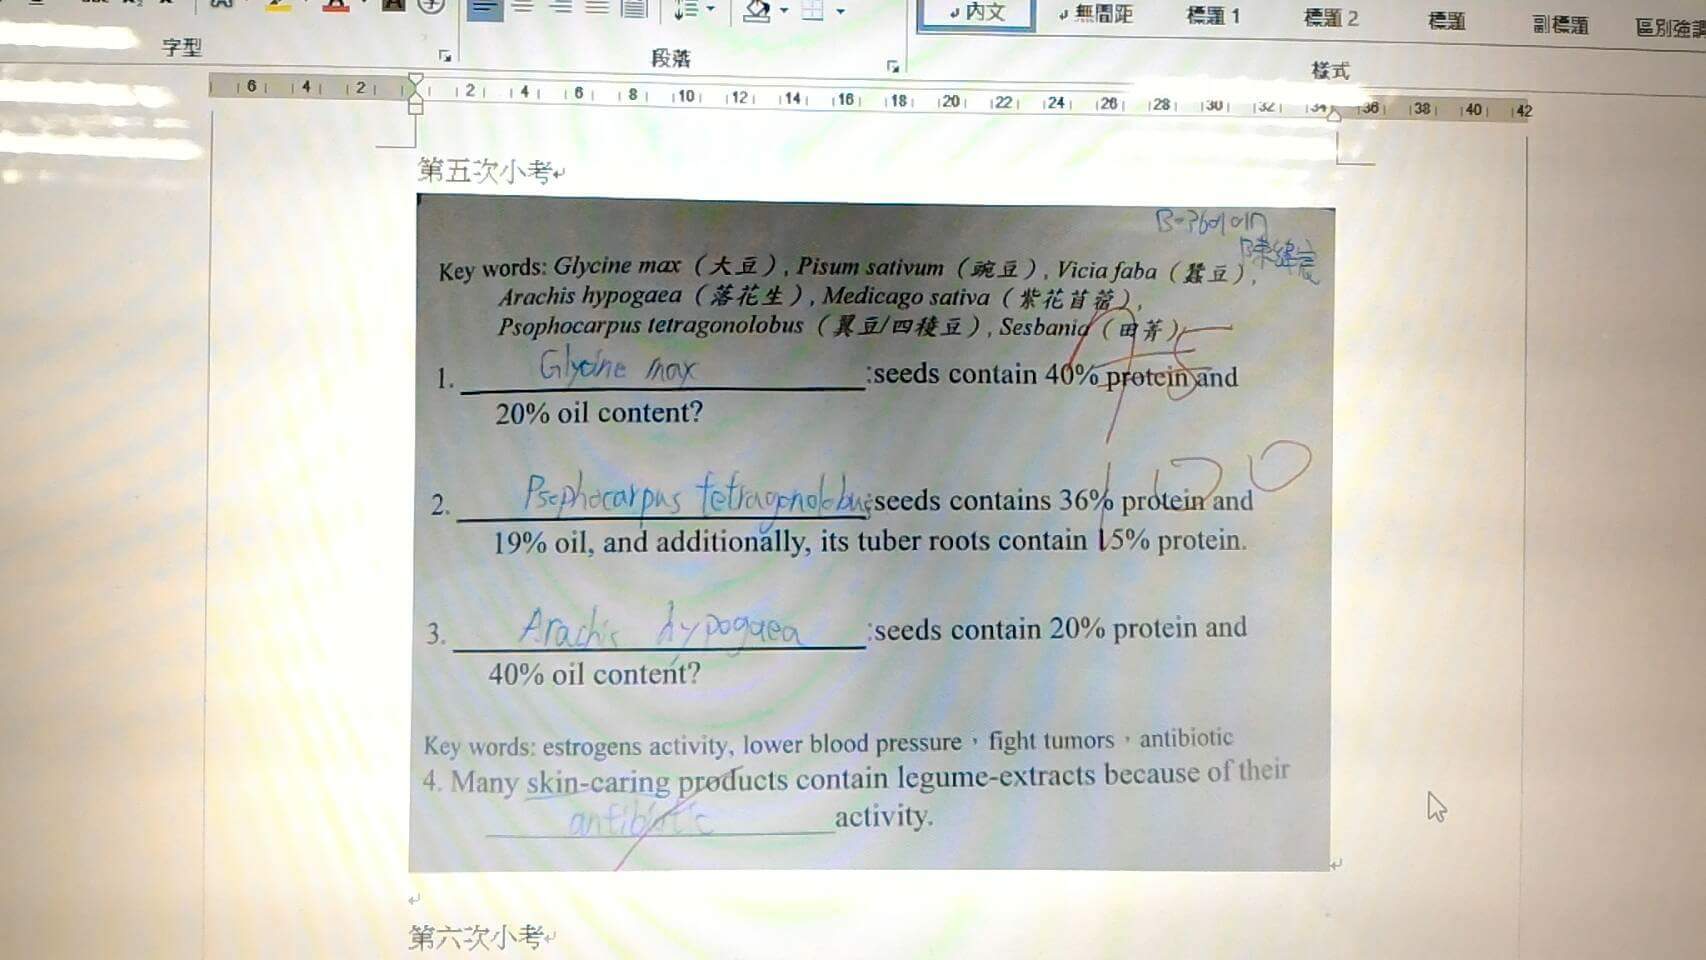 內文
無間距
標題 1
標題 2
標題
副標題
區別強調
字型
段落
樣式
6 4 2 2 4 6 8 10 12 14 16 18 20 22 24 26 28 30 32 34 36 38 40 42
第五次小考
Key words: Glycine max（大豆）, Pisum sativum（豌豆）, Vicia faba（蠶豆）,
Arachis hypogaea（落花生）, Medicago sativa（紫花苜蓿）,
Psophocarpus tetragonolobus（翼豆/四稜豆）, Sesbania（田菁）
1. Glycine max :seeds contain 40% protein and
20% oil content?
2. Psophocarpus tetragonolobus :seeds contains 36% protein and
19% oil, and additionally, its tuber roots contain 15% protein.
3. Arachis hypogaea :seeds contain 20% protein and
40% oil content?
Key words: estrogens activity, lower blood pressure，fight tumors，antibiotic
4. Many skin-caring products contain legume-extracts because of their
antibiotic activity.
第六次小考